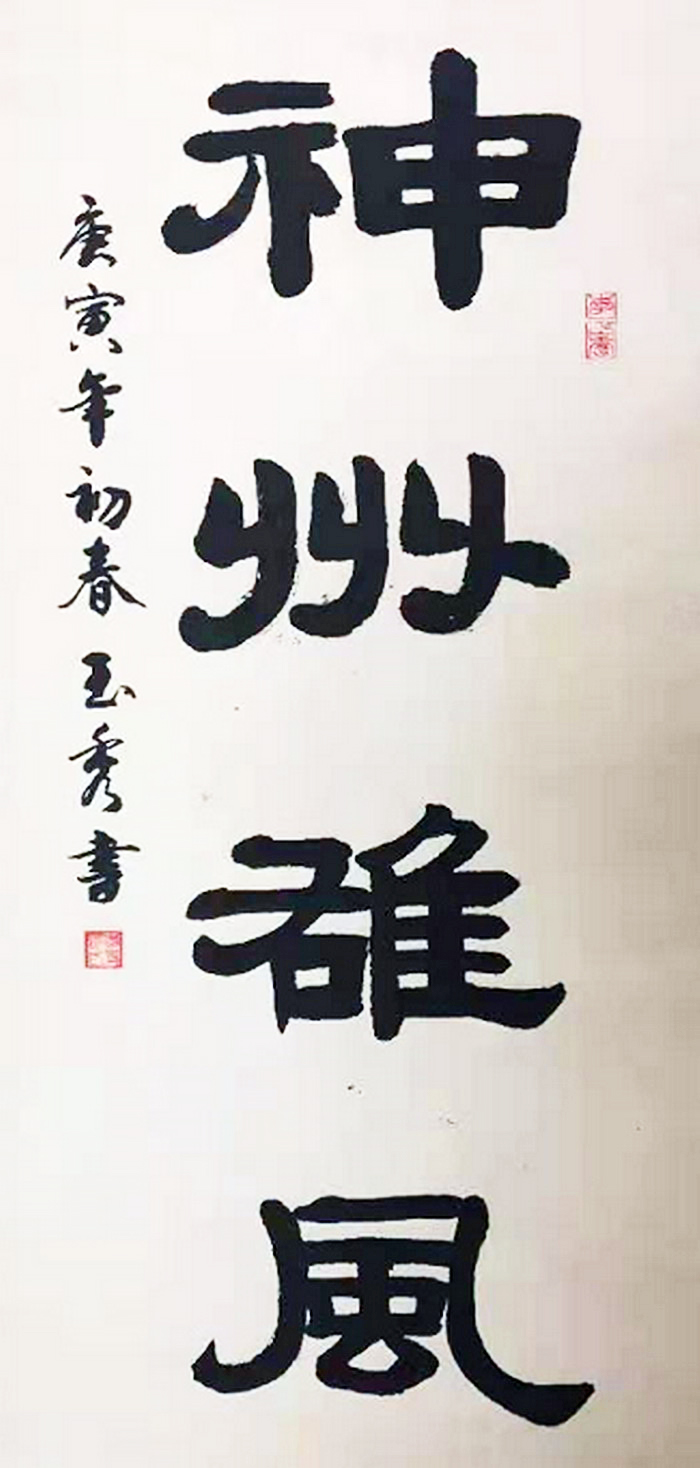 神州雄風
庚寅年初春玉秀書